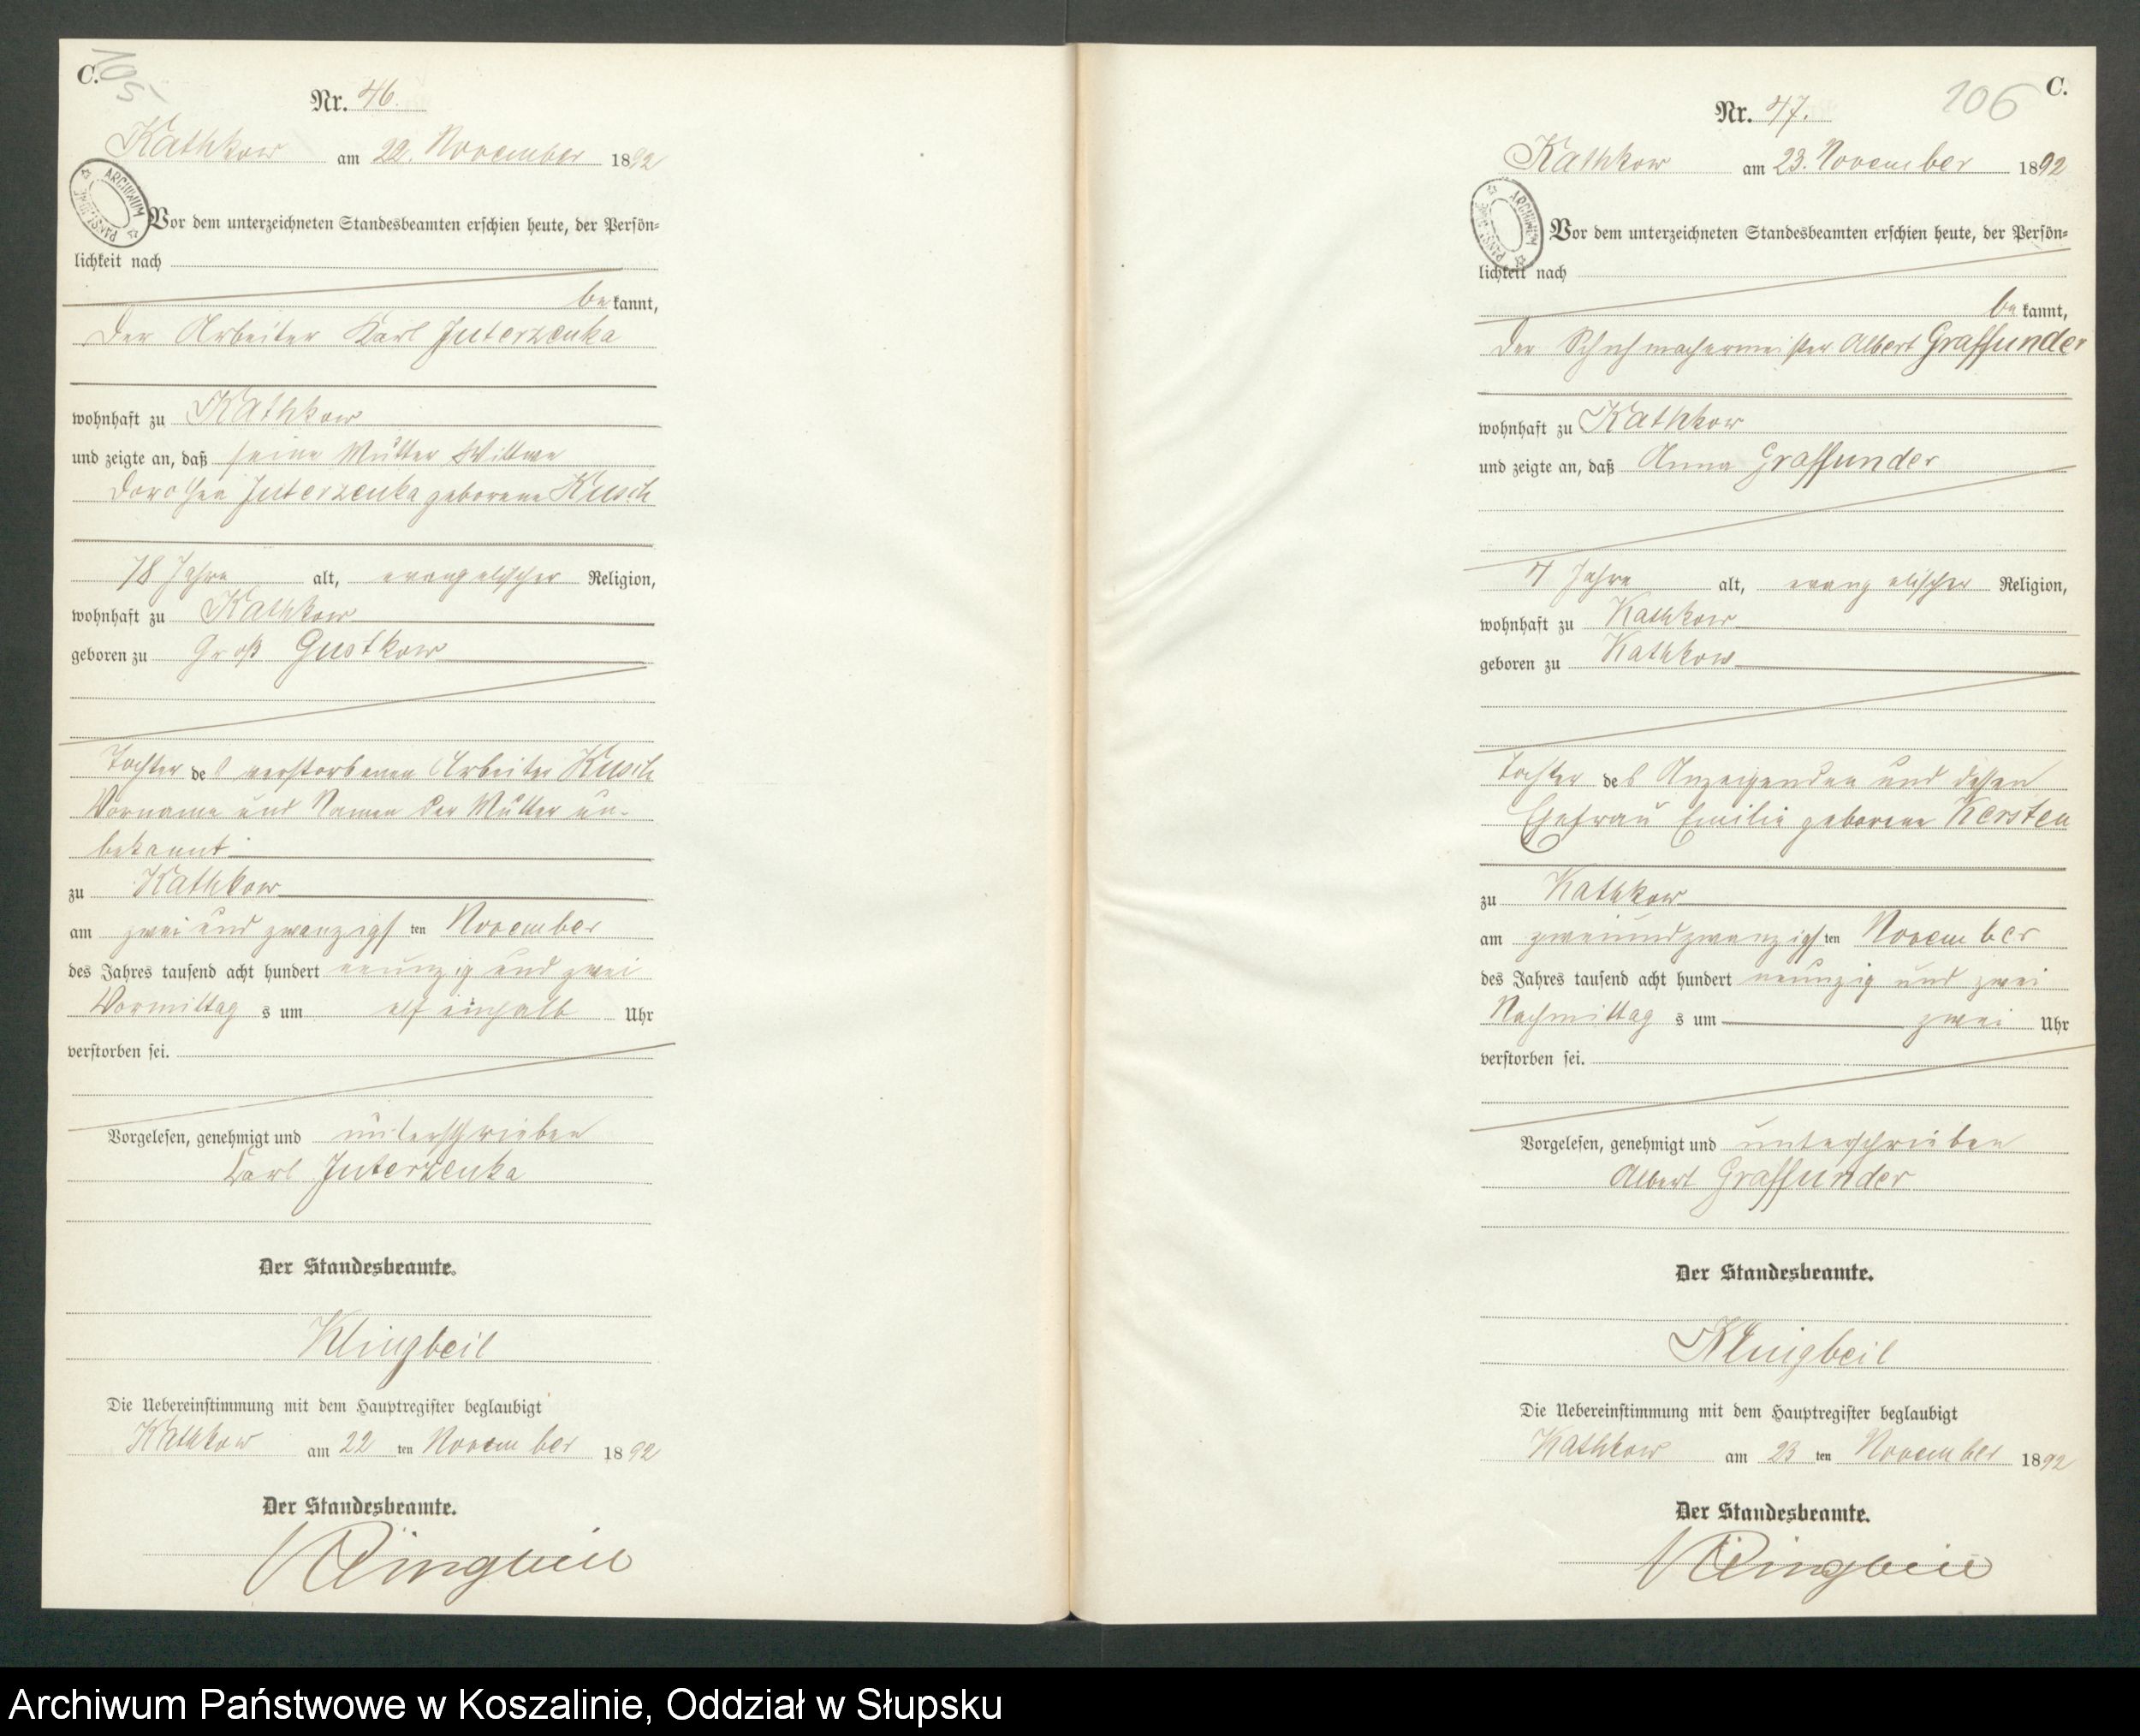 C.
105
Nr. 46.
Kathkow am 22. November 1892
ARCHIWUM PAŃSTWOWE
Vor dem unterzeichneten Standesbeamten erschien heute, der Persön-
lichkeit nach
bekannt,
Der Arbeiter Karl Juterzenka
wohnhaft zu Kathkow
und zeigte an, daß seine Mutter Wittwe
Dorothea Juterzenka geborene Kusch
78 Jahre alt, evangelischer Religion,
wohnhaft zu Kathkow
geboren zu Groß Gustkow
Tochter des verstorbenen Arbeiter Kusch
Vorname und Namen der Mutter un-
bekannt
zu Kathkow
am zwei und zwanzigsten November
des Jahres tausend acht hundert neunzig und zwei
Vormittags um elf einhalb Uhr
verstorben sei.
Vorgelesen, genehmigt und unterschrieben
Karl Juterzenka
Der Standesbeamte.
Klingbeil
Die Uebereinstimmung mit dem Hauptregister beglaubigt
Kathkow am 22 ten November 1892
Der Standesbeamte.
Klingbeil
C.
106
Nr. 47.
Kathkow am 23. November 1892
ARCHIWUM PAŃSTWOWE
Vor dem unterzeichneten Standesbeamten erschien heute, der Persön-
lichkeit nach
bekannt,
Der Schuhmachermeister Albert Graffunder
wohnhaft zu Kathkow
und zeigte an, daß Anna Graffunder
4 Jahre alt, evangelischer Religion,
wohnhaft zu Kathkow
geboren zu Kathkow
Tochter des Anzeigenden und dessen
Ehefrau Emilie geborene Kersten
zu Kathkow
am zweiundzwanzigsten November
des Jahres tausend acht hundert neunzig und zwei
Nachmittags um zwei Uhr
verstorben sei.
Vorgelesen, genehmigt und unterschrieben
Albert Graffunder
Der Standesbeamte.
Klingbeil
Die Uebereinstimmung mit dem Hauptregister beglaubigt
Kathkow am 23 ten November 1892
Der Standesbeamte.
Klingbeil
Archiwum Państwowe w Koszalinie, Oddział w Słupsku